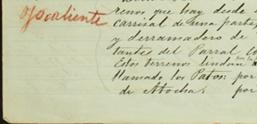 Ojocaliente
renos que hay desde
carrizal de una parte
y derramadero de
tantes del Parral
Estos terrenos lindan
llamado los Patos: por
de Atocha: por